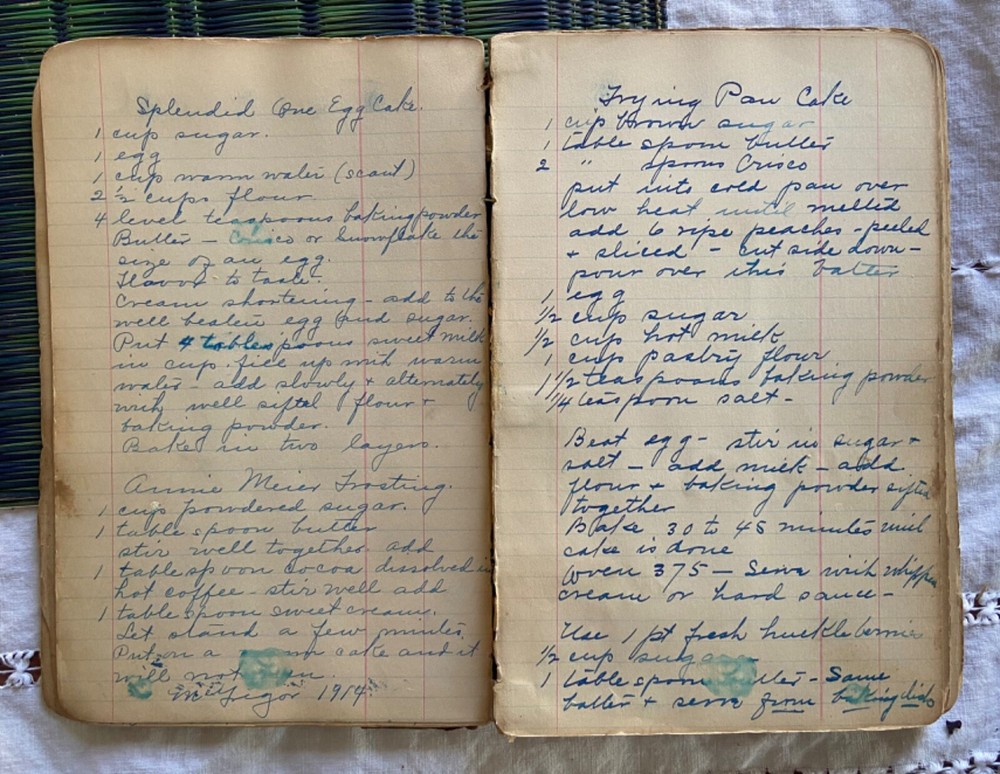 Splendid One Egg Cake.
1 cup sugar.
1 egg
1 cup warm water (scant)
2 ½ cups flour
4 level teaspoons baking powder
Butter – Crisco or Snowflake the
size of an egg.
Flavor to taste.
Cream shortening – add to the
well beaten egg and sugar.
Put 4 tablespoons sweet milk
in cup. fill up with warm
water – add slowly & alternately
with well sifted flour &
baking powder.
Bake in two layers.
Annie Meier Frosting.
1 cup powdered sugar.
1 table spoon butter
stir well together. add
1 table spoon cocoa dissolved in
hot coffee – stir well add
1 table spoon sweet cream.
Let stand a few minutes.
Put on a cake and it
will not
1914
Frying Pan Cake
1 cup brown sugar
1 table spoon butter
2 " spoons Crisco
put into cold pan over
low heat until melted
add 6 ripe peaches – peeled
& sliced – cut side down –
pour over this batter
1 egg
1/2 cup sugar
1/2 cup hot milk
1 cup pastry flour
1 1/2 teaspoons baking powder
1/4 teaspoon salt –
Beat egg – stir in sugar &
salt – add milk – add
flour & baking powder sifted
together
Bake 30 to 45 minutes until
cake is done
Oven 375 – Serve with whipped
cream or hard sauce –
Use 1 pt fresh huckleberries
1/2 cup sugar
1 table spoon butter – Same
batter & serve from baking dish